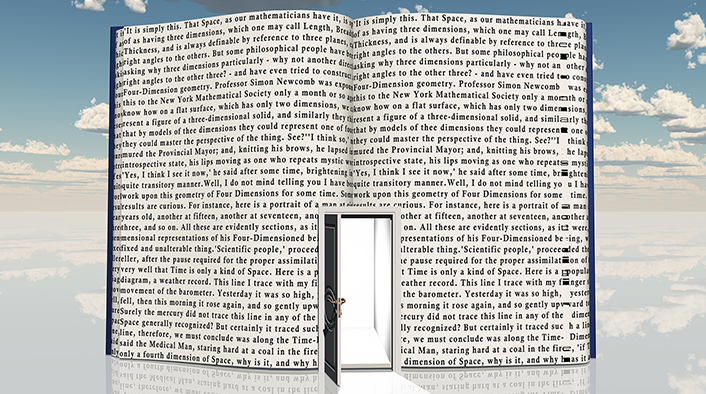 'It is simply this. That Space, as our mathematicians have it, is
of as having three dimensions, which one may call Length, Brea
Thickness, and is always definable by reference to three planes,
right angles to the others. But some philosophical people have be
asking why three dimensions particularly - why not another direc
right angles to the other three? - and have even tried to construct
Four-Dimension geometry. Professor Simon Newcomb was expou
this to the New York Mathematical Society only a month or so a
know how on a flat surface, which has only two dimensions, we
represent a figure of a three-dimensional solid, and similarly they
that by models of thee dimensions they could represent one of fo
they could master the perspective of the thing. See?''I think so,'
mured the Provincial Mayor; and, knitting his brows, he lapsed
introspective state, his lips moving as one who repeats mystic w
'Yes, I think I see it now,' he said after some time, brightening
quite transitory manner.Well, I do not mind telling you I have be
work upon this geometry of Four Dimensions for some time. Som
results are curious. For instance, here is a portrait of a man at
years old, another at fifteen, another at seventeen, ano
three, and so on. All these are evidently sections, as it
mensional representations of his Four-Dimensioned be
fixed and unalterable thing.'Scientific people,' proceed
after the pause required for the proper assimilatio
very well that Time is only a kind of Space. Here is a p
diagram, a weather record. This line I trace with my fi
movement of the barometer. Yesterday it was so high,
fell, then this morning it rose again, and so gently upw
Surely the mercury did not trace this line in any of the
Space generally recognized? But certainly it traced suc
line, therefore, we must conclude was along the Time-
said the Medical Man, staring hard at a coal in the fire
only a fourth dimension of Space, why is it, and why h
'It is simply this. That Space, as our mathematicians have it, is
of as having three dimensions, which one may call Length
Thickness, and is always definable by reference to three planes
right angles to the others. But some philosophical people
asking why three dimensions particularly - why not an other
right angles to the other three? - and have even tried to cons
Four-Dimension geometry. Professor Simon Newcomb was e
this to the New York Mathematical Society only a month or
know how on a flat surface, which has only two dimensi
represent a figure of a three-dimensional solid, and similarly
that by models of thee dimensions they could represent one
they could master the perspective of the thing. See?''I think
mured the Provincial Mayor; and, knitting his brows, he laps
introspective state, his lips moving as one who repeats mysti
'Yes, I think I see it now,' he said after some time, brighten
quite transitory manner.Well, I do not mind telling you I ha
work upon this geometry of Four Dimensions for some time.
results are curious. For instance, here is a portrait of a man
other at fifteen, another at seventeen, another
on. All these are evidently sections, as it were
presentations of his Four-Dimensioned being,
alterable thing.'Scientific people,' proceeded
pause required for the proper assimilation of
t Time is only a kind of Space. Here is a popula
eather record. This line I trace with my finger
the barometer. Yesterday it was so high, yester
s morning it rose again, and so gently upward
rcury did not trace this line in any of the dimen
lly recognized? But certainly it traced such a line
we must conclude was along the Time-Di
Man, staring hard at a coal in the fire, 'if T
dimension of Space, why is it, and why has it